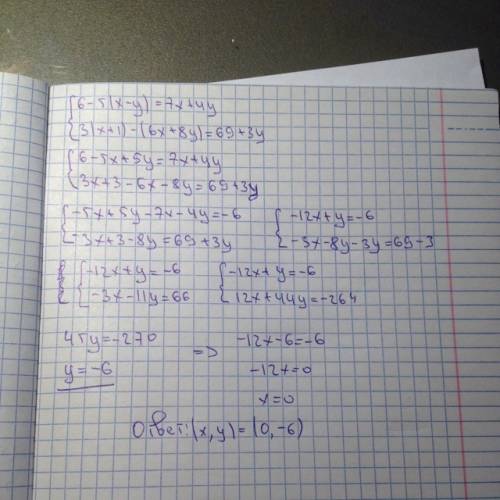 {6-5(x-y)=7x+4y
{3(x+1)-(6x+8y)=69+3y
{6-5x+5y=7x+4y
{3x+3-6x-8y=69+3y
{-5x+5y-7x-4y=-6 {-12x+y=-6
{-3x+3-8y=69+3y {-3x-8y-3y=69-3
{-12x+y=-6 {-12x+y=-6
{-3x-11y=66 {12x+44y=-264
45y=-270 => -12x-6=-6
y=-6 -12x=0
x=0
Ответ:(x,y)=(0,-6)